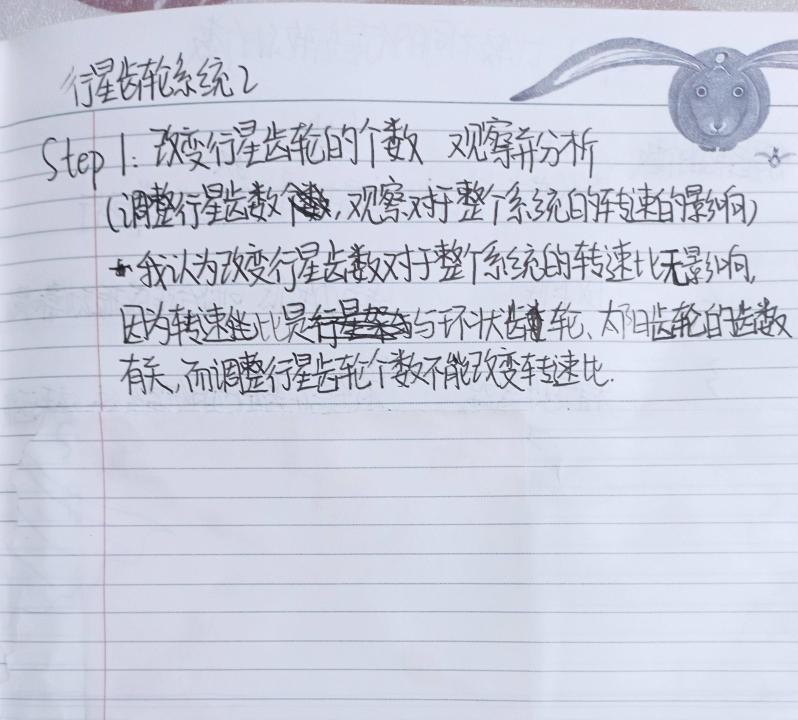 行星齿轮系统2
Step 1: 改变行星齿轮的个数 观察并分析
(调整行星齿数, 观察对于整个系统的转速的影响)
我认为改变行星齿数对于整个系统的转速比无影响,
因为转速比是与环状齿轮、太阳齿轮的齿数
有关,而调整行星齿轮个数不能改变转速比.